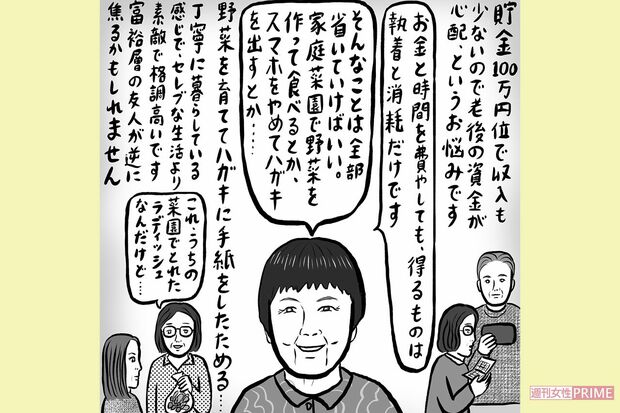 貯金100万円位で収入も
少ないので老後の資金が
心配、というお悩みです
お金と時間を費やしても、得るものは
執着と消耗だけです
そんなことは全部
省いていけばいい。
家庭菜園で野菜を
作って食べるとか、
スマホをやめてハガキ
を出すとか……
野菜を育ててハガキに手紙をしたためる…
丁寧に暮らしている
感じで、セレブな生活より
素敵で格調高いです
富裕層の友人が逆に
焦るかもしれません
これ、うちの
菜園でとれた
ラディッシュ
なんだけど…
週刊女性PRIME